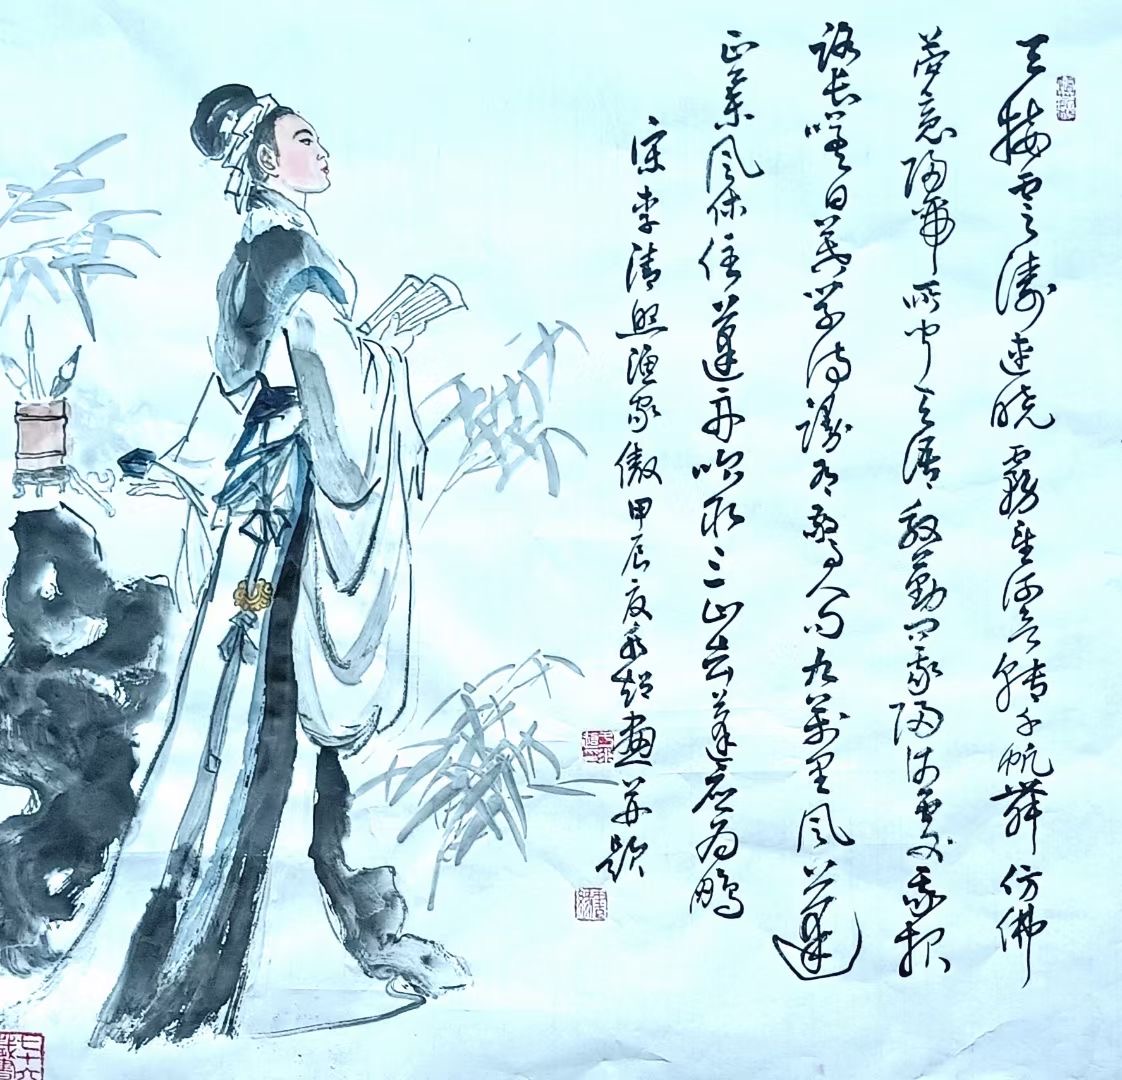 天接雲濤連曉霧星河欲轉千帆舞仿佛
夢魂歸帝所聞天語殷勤問我歸何處我報
路長嗟日暮學詩謾有驚人句九萬里風蓬
正舉風休住蓬舟吹取三山去蓬应为鵬
宋李清照漁家傲甲辰夏超畫并題
七十六